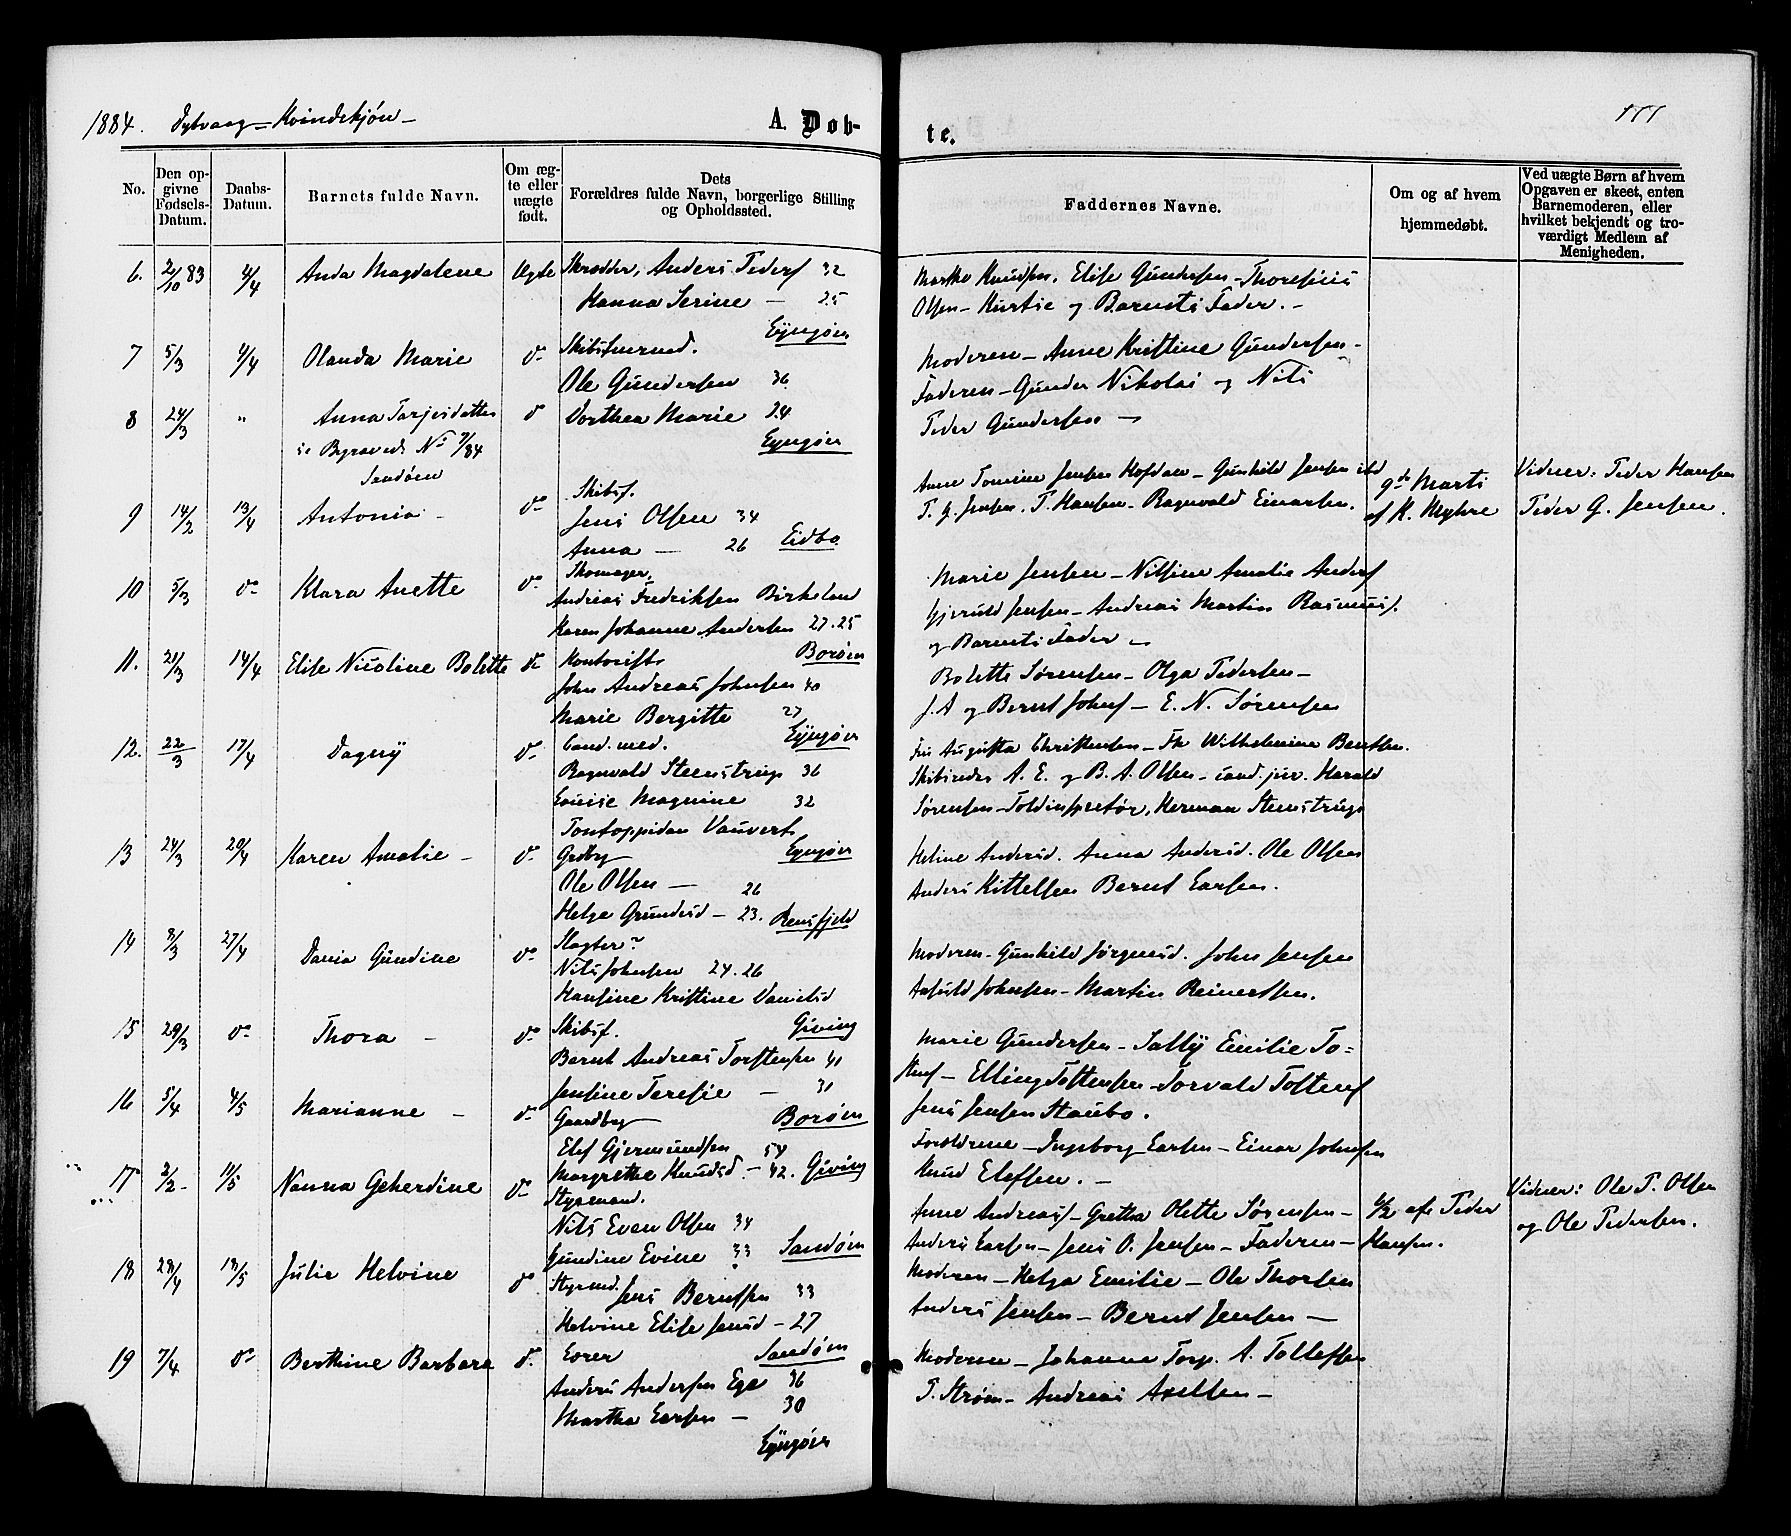 1884. Dybvaag – Kvindekjøn –
A. Døb-
te.
177
No.
Den op-
givne
Fødsels-
Datum.
Daabs-
Datum.
Barnets fulde Navn.
Om æg-
te eller
uægte
født.
Dets
Forældres fulde Navn, borgerlige Stilling
og Opholdssted.
Faddernes Navne.
Om og af hvem
hjemmedøbt.
Ved uægte Børn af hvem
Opgaven er skeet, enten
Barnemoderen, eller
hvilket bekjendt og tro-
værdigt Medlem af
Menigheden.
6. 2/10 83 4/4 Anda Magdalene Ægte Skrædder, Anders Peders 32
Hanna Serine – 25
Lyngøen
Marthe Knudsen, Elise Gundersen – Thoresius
Olsen – Kirstie og Barnets Fader. –
7 5/3 4/4 Olanda Marie do Skibstmrmd.
Ole Gundersen 36
Dorthea Marie 34
Lyngøen
Moderen – Anne Kristine Gundersen –
Faderen – Gunder Nikolai og Nils
Peder Gundersen –
8 24/3 " Anna Tarjesdatter do
se Begravede No 7/84
Sandøen
9 14/2 13/4 Antonia – do Skibsf.
Jens Olsen 34
Anna – 26 Eidbo
Anne Tomine Jensen Hofdan – Gunhild Jensen ibd
P. G. Jensen. P. Hansen – Ragnvald Einarsen.
9de Marts
af K. Myhre
Vidner: Peder Hansen
Peder G. Jensen.
10 5/3 do Klara Anette do Skomager,
Andreas Fredriksen Birkeland
Karen Johanne Andersen 27.25
Borøen
Marie Jensen – Nilsine Amalie Anders
Gjeruld Jensen – Andreas Martin Rasmus.
og Barnets Fader –
11. 21/3 14/4 Elise Nicoline Bolette do Kontorist
John Andreas Johnsen 40
Marie Bergitte 27
Lyngøen
Bolette Sørensen – Olga Pedersen –
J. A og Bernt Johns – E. N. Sørensen
12. 22/3 17/4 Dagny do Cand. med.
Ragnvald Steenstrup 36
Louise Magnine 32
Pontoppidan Vauvert
Lyngøen
Fru Augusta Christensen – Fr Wilhelmine Bentsen.
Skibsreder A. E. og B. A. Olsen – cand. jur. Harald
Sørensen – Toldinspektør, Herman Steenstrup
13 24/3 20/4 Karen Amalie – do Grdbg
Ole Olsen – 26
Helge Grundesd – 23. Rensfjeld
Heline Andersd. Anna Andersd. Ole Olsen
Anders Kittelsen Bernt Larsen.
14 8/3 27/4 Dania Gundine do Slagter?
Nils Johnsen 24.26
Hansine Kristine Danielsd
Giving
Moderen – Gunhild Jørgensd. John Jensen
Aasuld Johnsen – Martin Reinertsen.
15 29/3 do Thora – do Skibsf.
Bernt Andreas Torstensen 41
Jensine Teresie – 31
Borøen
Marie Gundersen – Sally Emilie To=
stens – Elling Tostensen – Torvald Tostens
Jens Jensen Staubo.
16 5/4 4/5 Marianne – do Gaardbg
Elef Gjermundsen 54
Margrethe Knudsd – 42. Giving
Forældrene – Ingeborg Larsen – Einar Johnsen
Knud Elefsen. –
17 2/2 11/5 Nanna Geherdine do Styrmand.
Nils Even Olsen 34
Gundine Evine 33 Sandøen
Anne Andreas – Gretha Olette Sørensen –
Anders Larsen – Jens O. Jensen – Faderen –
6/2 af Peder
Hansen.
Vidner: Ole P. Olsen
og Ole Pedersen.
18 28/4 18/5 Julie Helvine do Styrmd. Jens Berntsen 33
Helvine Elise Jensd – 27
Sandøen
Moderen – Helga Emilie – Ole Thorsen
Anders Jensen – Bernt Jensen –
19 7/4 do Berthine Barbara do Lorer
Anders Andersen Ege 36
Martha Larsen – 30
Lyngøen
Moderen – Johanna Torp. A. Tollefsen
P. Strøm – Andreas Axelsen –